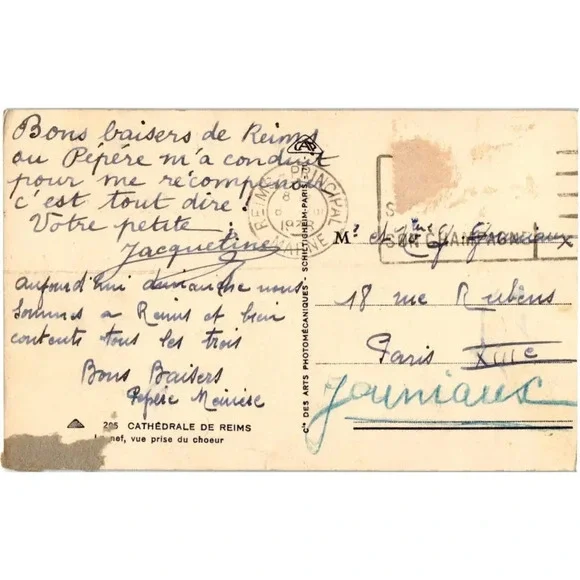 Bons baisers de Reims
ou Pépére m'a conduit
pour me récompenser
c'est tout dire !
Votre petite
Jacqueline
aujourd'hui dimanche nous
sommes a Reims et bien
contents tous les trois
Bons Baisers
Pepére
205 CATHÉDRALE DE REIMS
La nef, vue prise du choeur
REIMS PRINCIPAL
MARNE
Cie DES ARTS PHOTOMÉCANIQUES - SCHILTIGHEIM-PARIS
SON CHAMPAGNE
Mr et Mme
18 rue Rubens
Paris XIIIe
Jouniaux